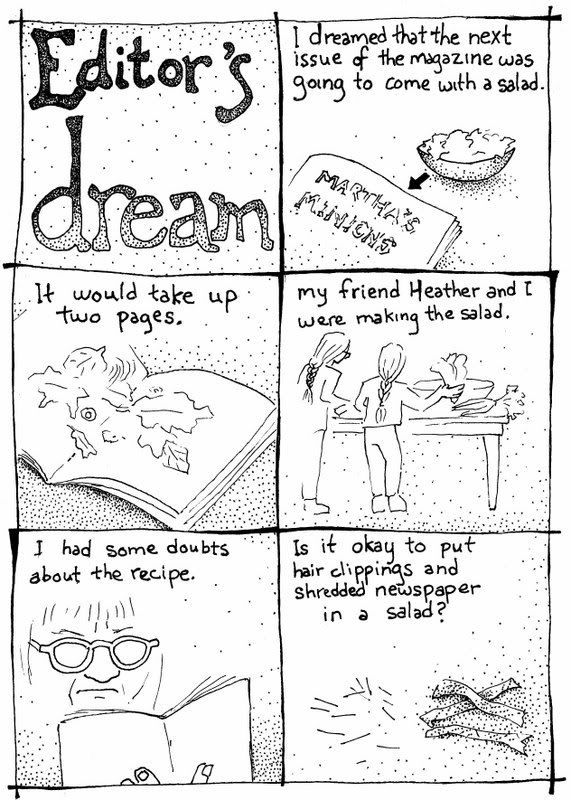 Editor's
dream
I dreamed that the next
issue of the magazine was
going to come with a salad.
MARTHA'S
MINIONS
It would take up
two pages.
my friend Heather and I
were making the salad.
I had some doubts
about the recipe.
Is it okay to put
hair clippings and
shredded newspaper
in a salad?